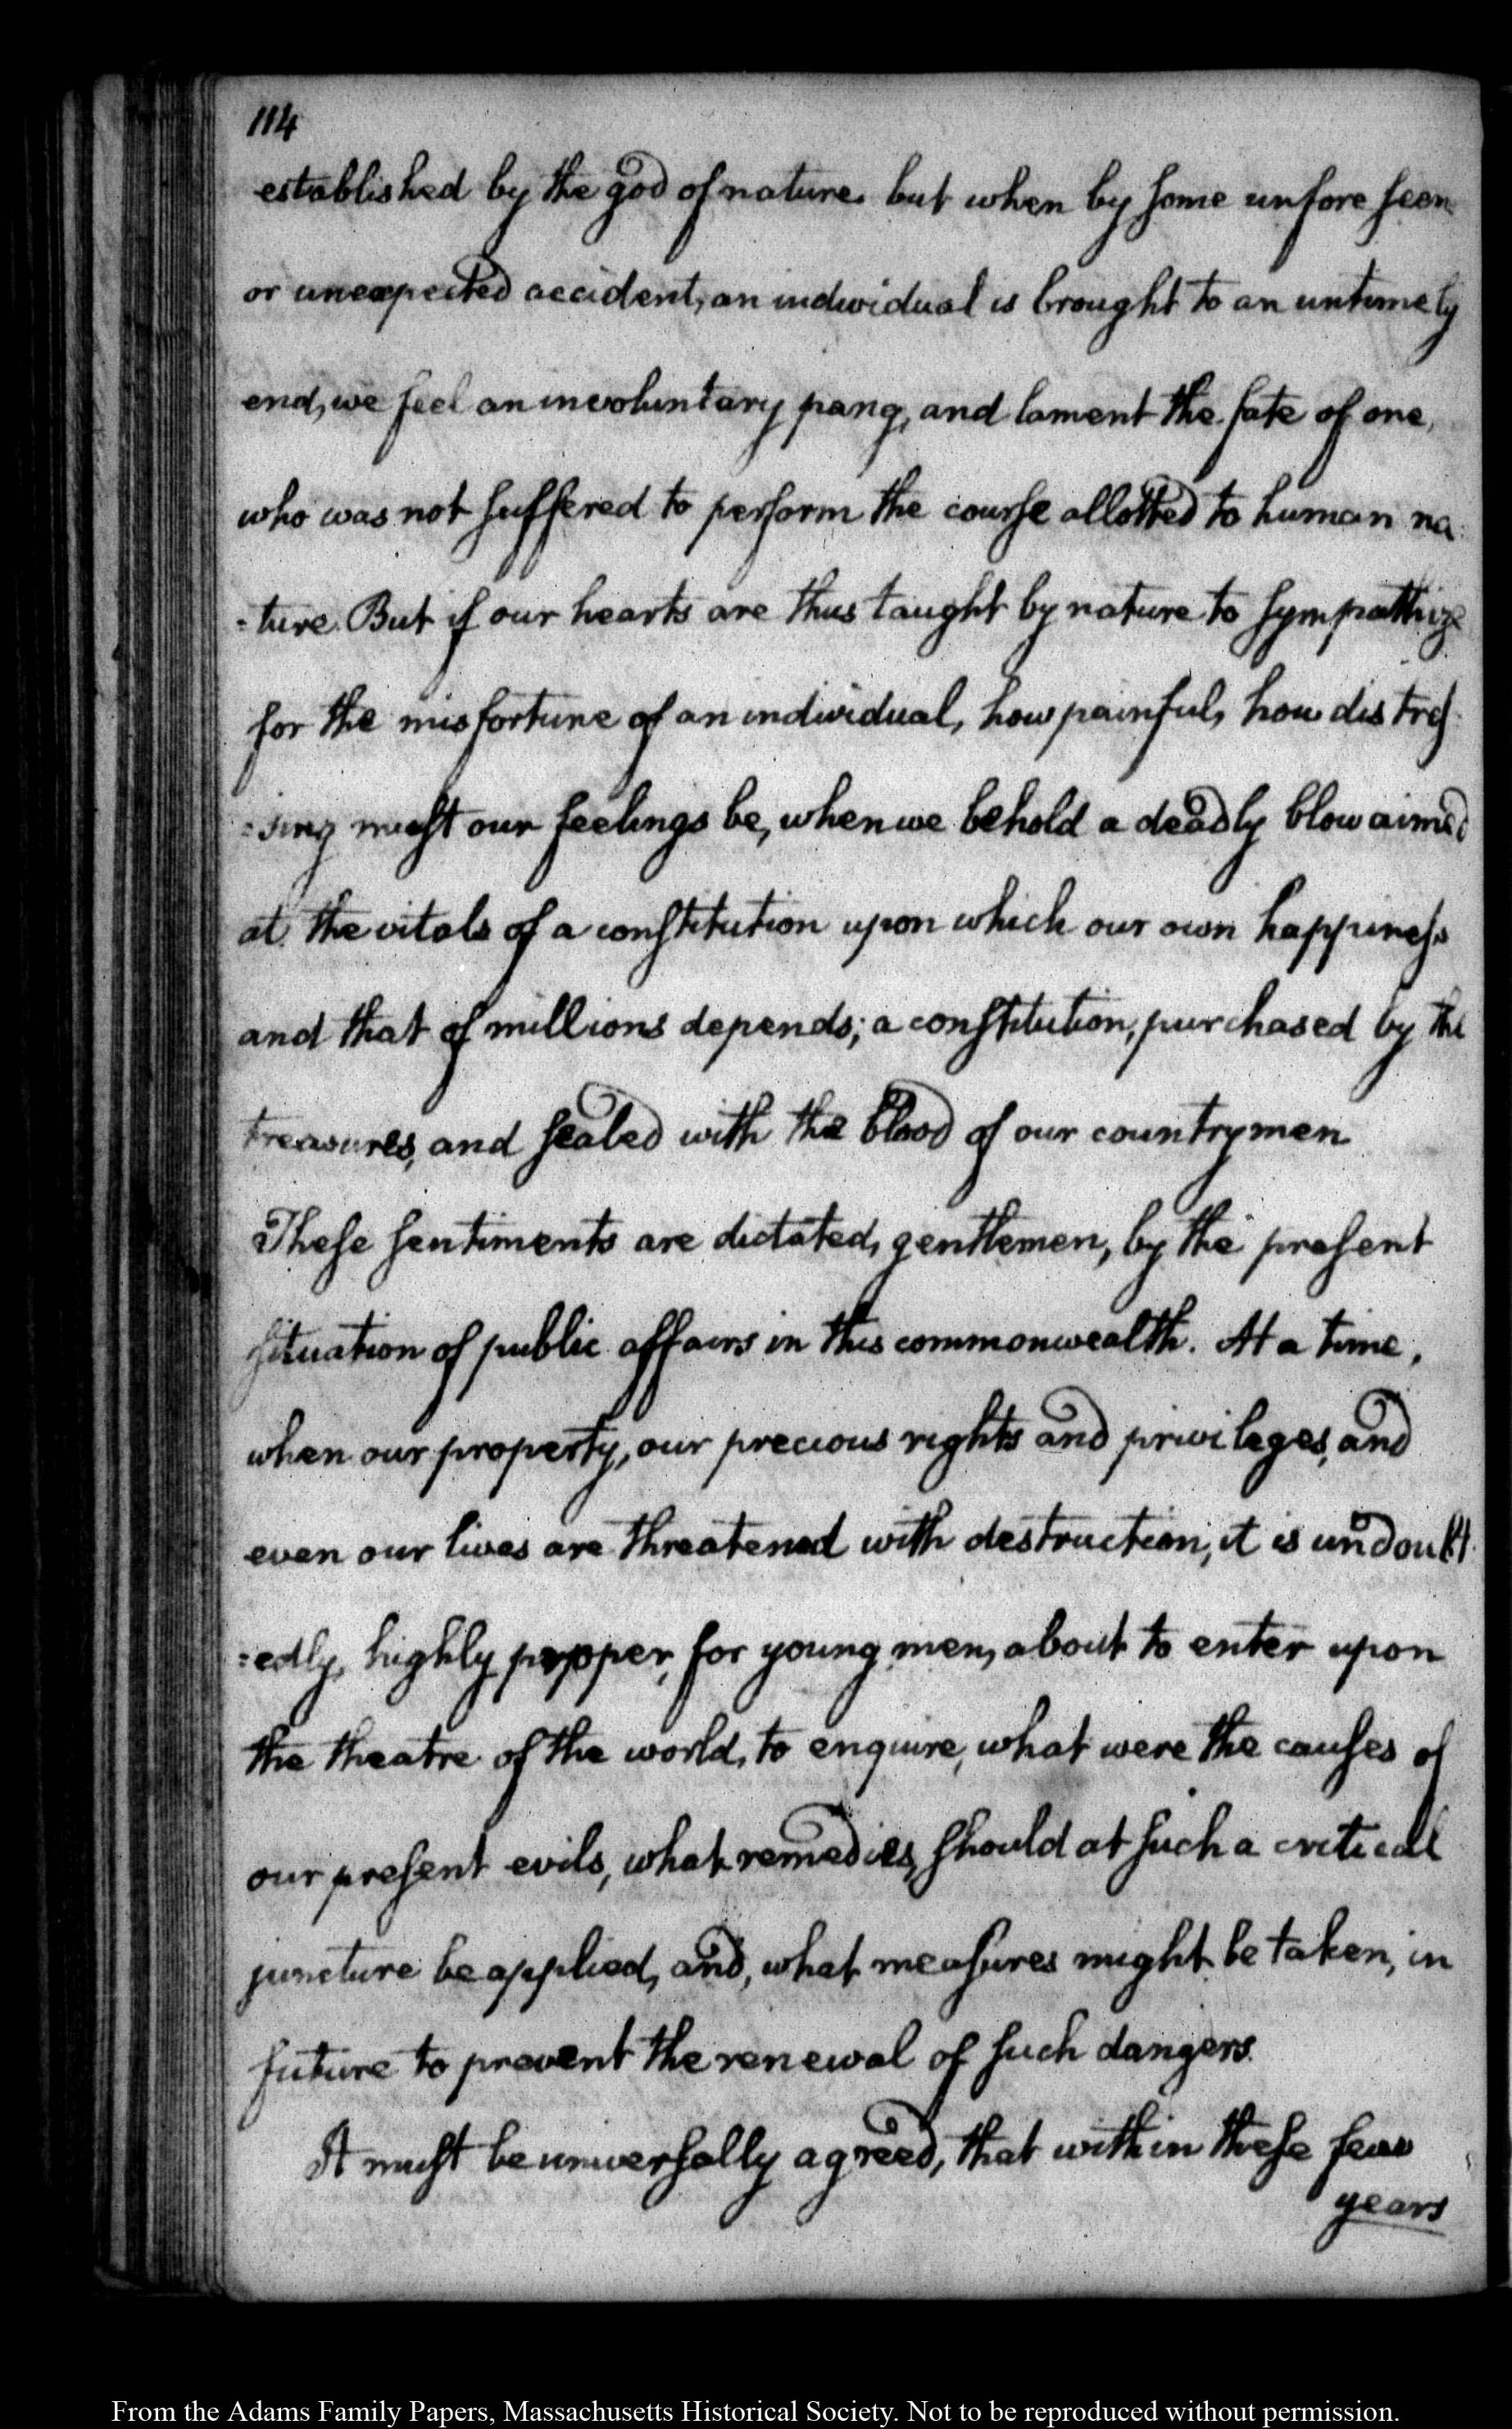 114
established by the god of nature. but when by some unforeseen
or unexpected accident, an individual is brought to an untimely
end, we feel an involuntary pang, and lament the fate of one,
who was not suffered to perform the course allotted to human na
:ture. But if our hearts are thus taught by nature to sympathize
for the misfortune of an individual, how painful, how distres
:sing must our feelings be, when we behold a deadly blow aimed
at the vitals of a constitution upon which our own happiness
and that of millions depends; a constitution, purchased by the
treasures, and sealed with the blood of our countrymen
These sentiments are dictated, gentlemen, by the present
situation of public affairs in this commonwealth. At a time,
when our property, our precious rights and privileges, and
even our lives are threatened with destruction, it is undoubt
:edly, highly propper, for young men, about to enter upon
the theatre of the world, to enquire, what were the causes of
our present evils, what remedies, should at such a critical
juncture be applied, and, what measures might be taken, in
future to prevent the renewal of such dangers.
It must be universally agreed, that within these few
years
From the Adams Family Papers, Massachusetts Historical Society. Not to be reproduced without permission.